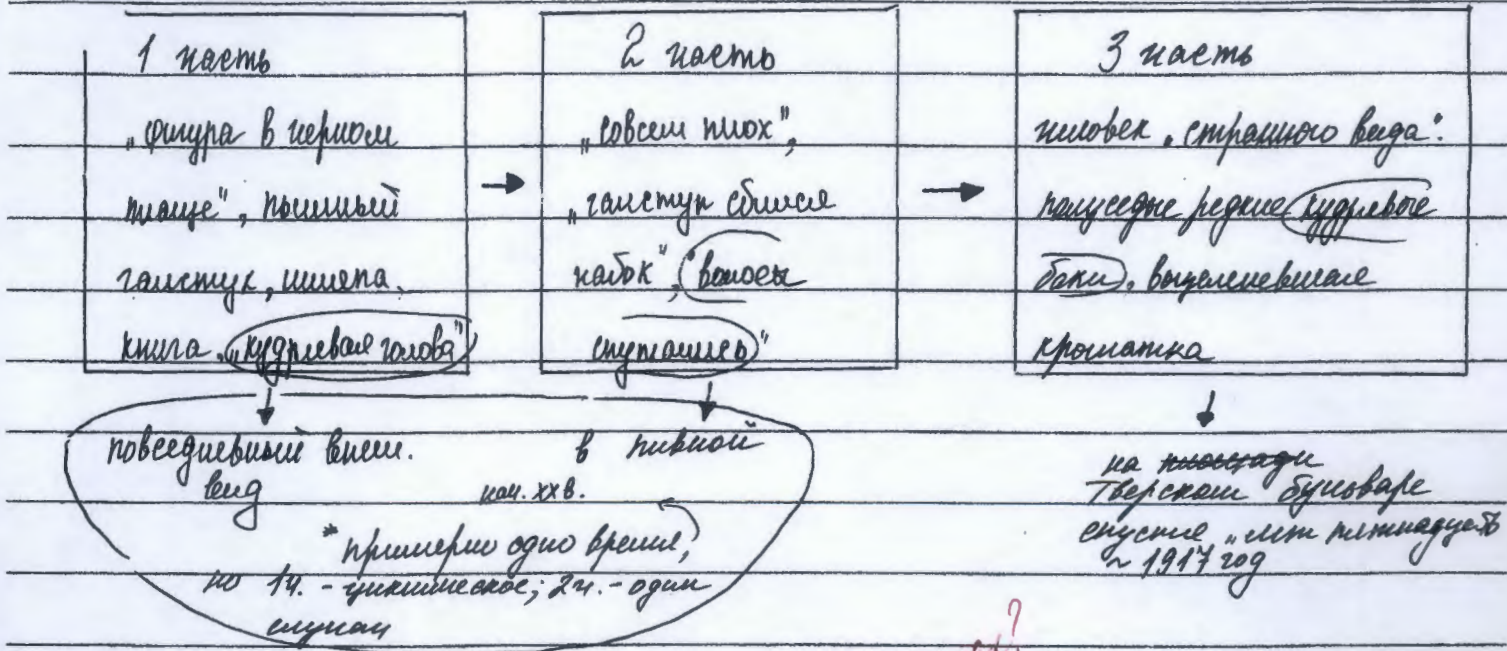 1 часть
„фигура в черном
плаще", пышный
галстук, шляпа,
книга, „кудрявая голова"
2 часть
„совсем плох",
„галстук сбился
набок", „волосы
спутались"
3 часть
человек „странного вида":
полуседые редкие кудрявые
баки, выцелевшая
крылатка
повседневный внеш.
вид
в пивной
нач. XX в.
* примерно одно время,
но 1ч. - циклическое; 2ч. - один
случай
на площади
Тверском бульваре
спустя „лет пятнадцать"
~ 1917 год
?